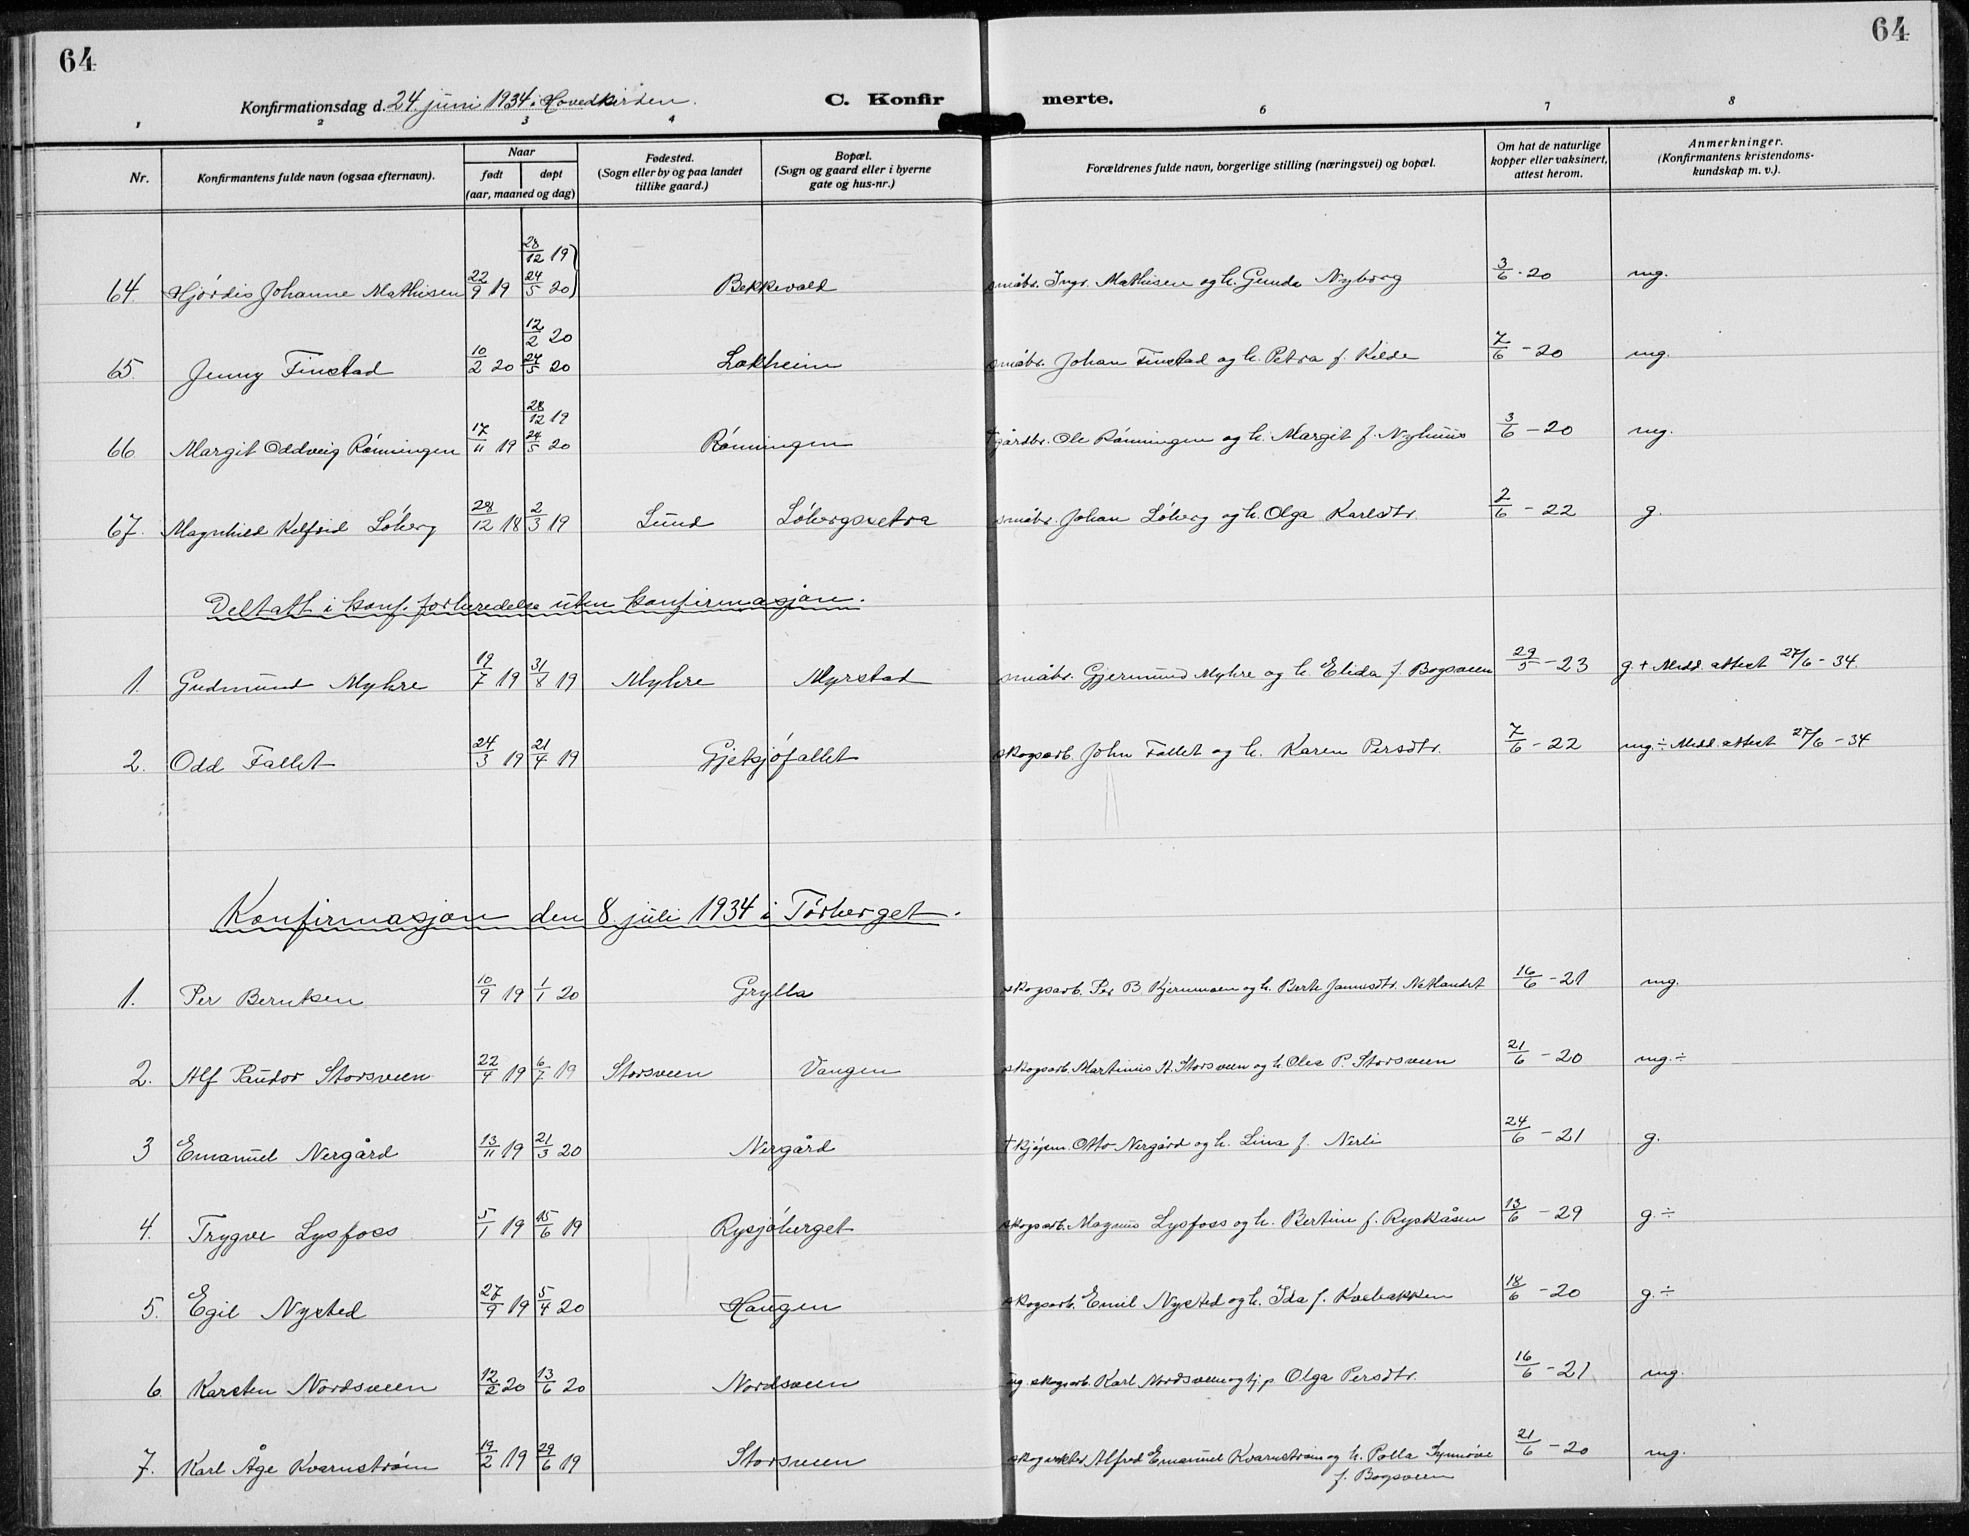 64
64
Konfirmationsdag d. 24. juni 1934 i Hovedkirken.
C. Konfir merte.
1 2 3 4 6 7 8
Nr.
Konfirmantens fulde navn (ogsaa efternavn).
Naar
født døpt
(aar, maaned og dag)
Fødested.
(Sogn eller by og paa landet
tillike gaard.)
Bopæl.
(Sogn og gaard eller i byerne
gate og hus-nr.)
Forældrenes fulde navn, borgerlige stilling (næringsvei) og bopæl.
Om hat de naturlige
kopper eller vaksinert,
attest herom.
Anmerkninger.
(Konfirmantens kristendoms-
kundskap m. v.).
28/12 19)
64. Hjórdis Johanne Mathisen 22/9 19 24/5 20) Bekkevold småbr. Ingv. Mathisen og h. Gunda Nyborg 3/6 - 20 mg.
12/2 20
65. Jenny Finstad 10/2 20 24/5 20 Lokheim småbr. Johan Finstad og h. Petra f. Kilde 7/6 - 20 mg.
28/12 19
66 Margit Oddveig Rónningen 17/11 19 24/5 20 Rónningen † gårdbr. Ole Rónningen og h. Margit f. Nyhuus 3/6 - 20 mg.
67. Magnhild Kelfrid Lóberg 28/12 18 2/3 19 Lund Lóbergsetra småbr. Johan Lóberg og h. Olga Karlsdtr. 2/6 - 22 g.
Deltatt i konf. forberedelse uten konfirmasjon.
1. Gudmund Myhre 19/7 19 31/8 19 Myhre Myrstad småbr. Gjermund Myhre og h. Elida f. Bogsveen 29/5 - 23 g + Medd. attest 27/6 - 34
2. Odd Fallet 24/3 19 21/4 19 Gjetsjófallet skogsarb. John Fallet og h. Karen Persdtr. 7/6 - 22 mg ÷ Medd. attest 27/6 - 34
Konfirmasjon den 8. juli 1934 i Tórberget.
1. Per Berntsen 10/9 19 1/1 20 Grylla skogsarb. Per B. Kjernmoen og h. Berte Jonusdtr. Nøtlandet 16/6 - 21 mg.
2. Alf Paudor Storsveen 22/4 19 6/7 19 Storsveen Vangen skogsarb. Martinus A. Storsveen og h Olea P. Storsveen 21/6 - 20 mg. ÷
3 Emanuel Nergård 13/11 19 21/3 20 Nergård † kjøpm. Otto Nergård og h. Lina f. Nerli 24/6 - 21 g.
4. Trygve Lysfoss 5/1 19 15/6 19 Rysjóberget skogsarb. Magnus Lysfoss og h. Bertine f. Ryskåsen 13/6 - 29 g. ÷
5. Egil Nysted 27/9 19 5/4 20 Haugen skogsarb. Emil Nysted og h. Ida f. Kvebakken 18/6 - 20 g. ÷
6 Karsten Nordsveen 12/2 20 13/6 20 Nordsveen ug. skogsarb. Karl Nordsveen og tj.p. Olga Persdtr. 16/6 - 21 mg.
7. Karl Åge Kvarnstróm 19/2 19 29/6 19 Storsveen skogvokter Alfred Emanuel Kvarnstróm og h. Polla Synnóve 21/6 - 20 mg.
f. Bogsveen